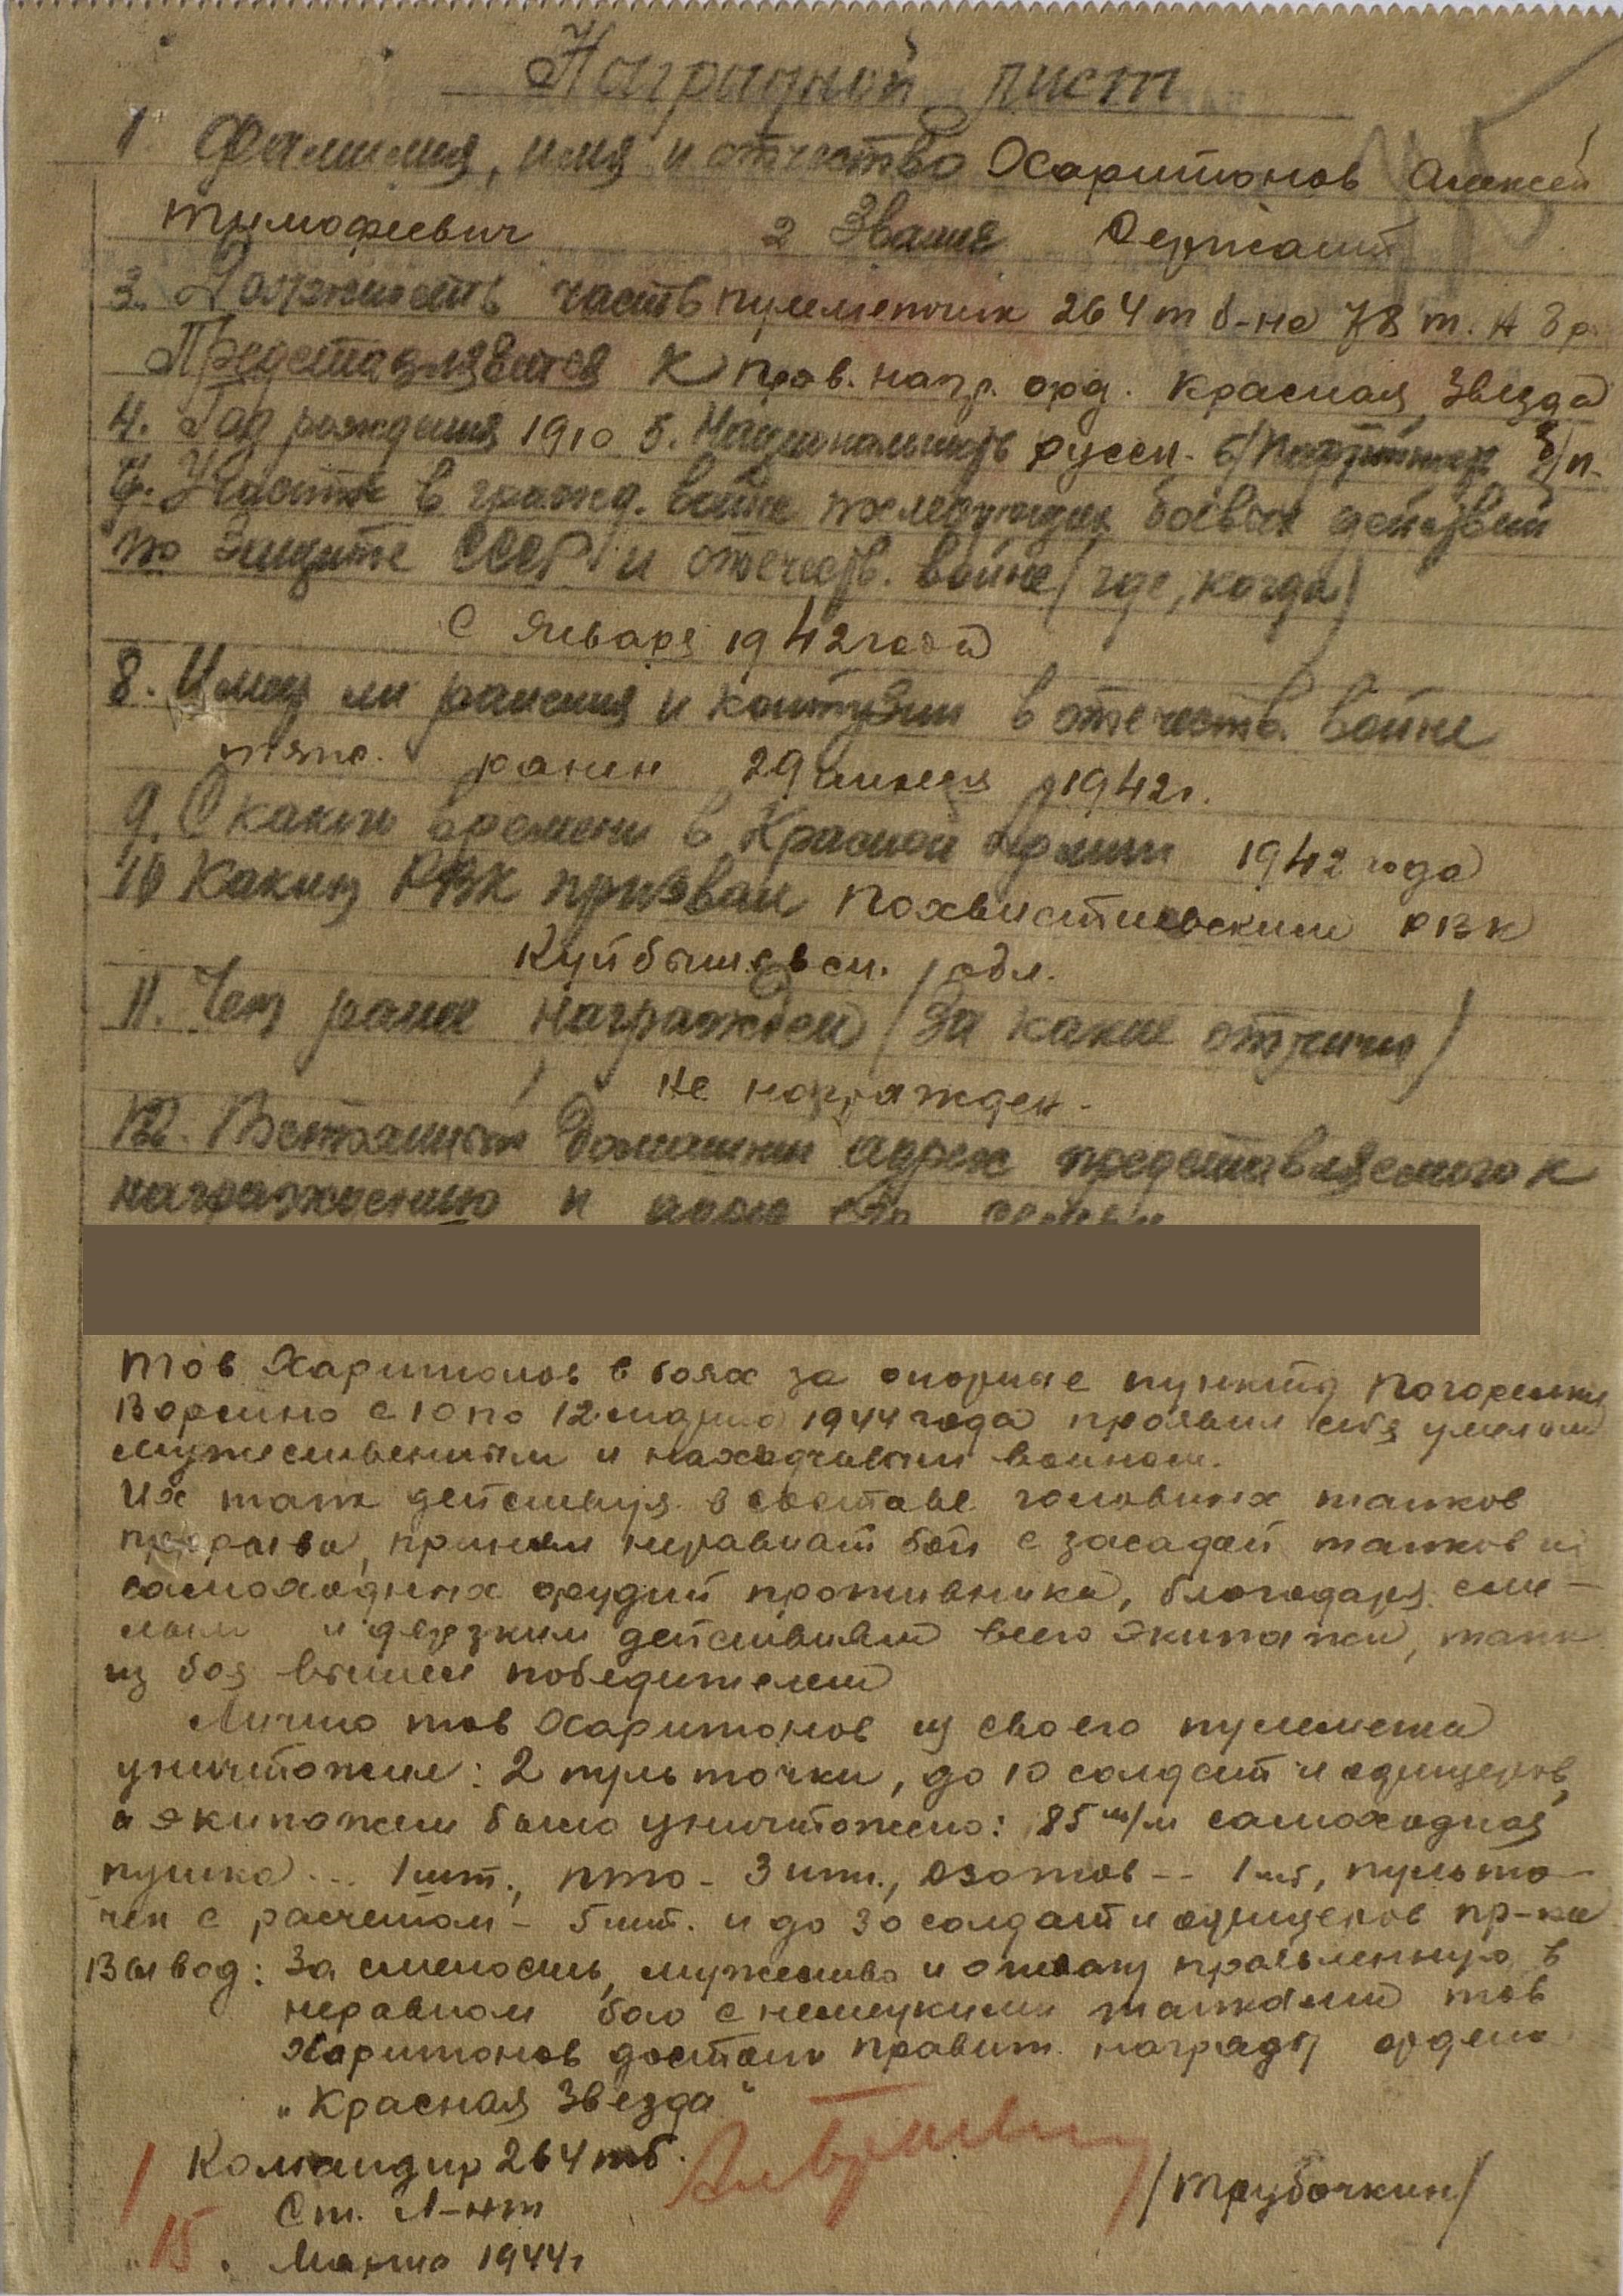 Наградной лист
1 Фамилия, имя и отчество Харитонов Алексей
Тимофеевич 2 Звание Сержант
3. Должность часть пулеметчик 264 т б-на 78 т.
Представляется к прав. нагр. орд. Красная Звезда
4. Год рождения 1910 5. Национальность русск. 6/ Партийность б/п.
7. Участие в гражд. войне последующих боевых действий
по защите СССР и отечеств. войне (где, когда)
С января 1942 года
8. Имеет ли ранения и контузии в отечеств. войне
тяж. ранен 29 1942г.
9. С какого времени в Красной Армии 1942 года
10 Каким РВК призван Похвистневским РВК
Куйбышевск. обл.
11. Чем ранее награжден (За какие отличия)
Не награжден.
12. Постоянный домашний адрес представляемого к
награждению и адрес его семьи
Тов Харитонов в боях за опорные пункты Погорелки
Воронино с 10 по 12 марта 1944 года проявил себя умелым
мужественным и находчивым воином.
Их танк действуя в составе головных танков
прорыва, принял неравный бой с засадой танков и
самоходных орудий противника, благодаря сме-
лым и дерзким действиям всего экипажа, танк
из боя вышел победителем
Лично тов Харитонов из своего пулемета
уничтожил: 2 пульточки, до 10 солдат и офицеров,
а экипажем было уничтожено: 85 м/м самоходная
пушка -- 1 шт., ПТО - 3 шт., Дзотов -- 1 шт, пульто-
чек с расчетом - 5 шт. и до 30 солдат и офицеров пр-ка
Вывод: За смелость, мужество и отвагу проявленную в
неравном бою с немецкими танками тов
Харитонов достоин правит. награды ордена
„Красная Звезда"
Командир 264 тб.
Ст. Л-нт /Трубочкин/
"15" Марта 1944г